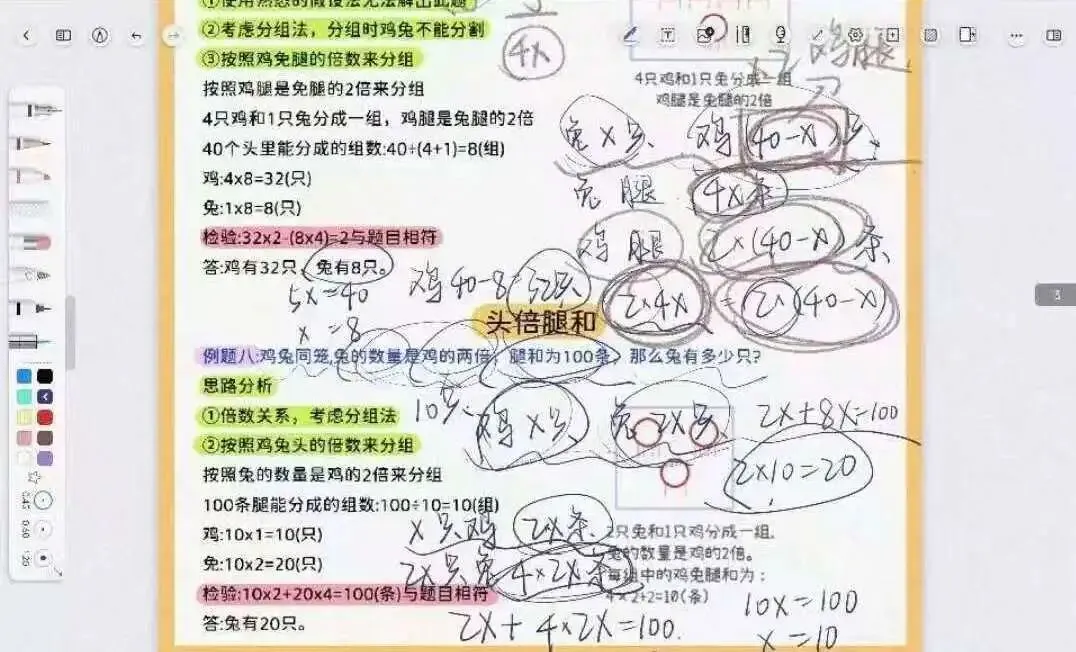 ①使用熟悉的假设法无法解出此题
②考虑分组法，分组时鸡兔不能分割
③按照鸡兔腿的倍数来分组
按照鸡腿是兔腿的2倍来分组
4只鸡和1只兔分成一组，鸡腿是兔腿的2倍
40个头里能分成的组数:40÷(4+1)=8(组)
鸡:4x8=32(只)
兔:1x8=8(只)
检验:32x2-(8x4)=2与题目相符
答:鸡有32只，兔有8只。
5x=40
x=8
4x
鸡腿
4只鸡和1只兔分成一组
鸡腿是兔腿的2倍
兔 x只 鸡 (40-x)只
兔腿 4x条
鸡腿 2×(40-x)条
鸡40-8=32只
2×4x = 2×(40-x)
头倍腿和
例题八:鸡兔同笼,兔的数量是鸡的两倍，腿和为100条，那么兔有多少只?
思路分析
①倍数关系，考虑分组法
②按照鸡兔头的倍数来分组
按照兔的数量是鸡的2倍来分组
100条腿能分成的组数:100÷10=10(组)
鸡:10x1=10(只)
兔:10x2=20(只)
检验:10x2+20x4=100(条)与题目相符
答:兔有20只。
10只
鸡 x只 兔 2x只
2x+8x=100
2×10=20
x只鸡 2x条
2x只兔 4×2x条
2x+4×2x=100
2只兔和1只鸡分成一组,
兔的数量是鸡的2倍。
每组中的鸡兔腿和为：
4×2+2=10(条)
10x=100
x=10
3